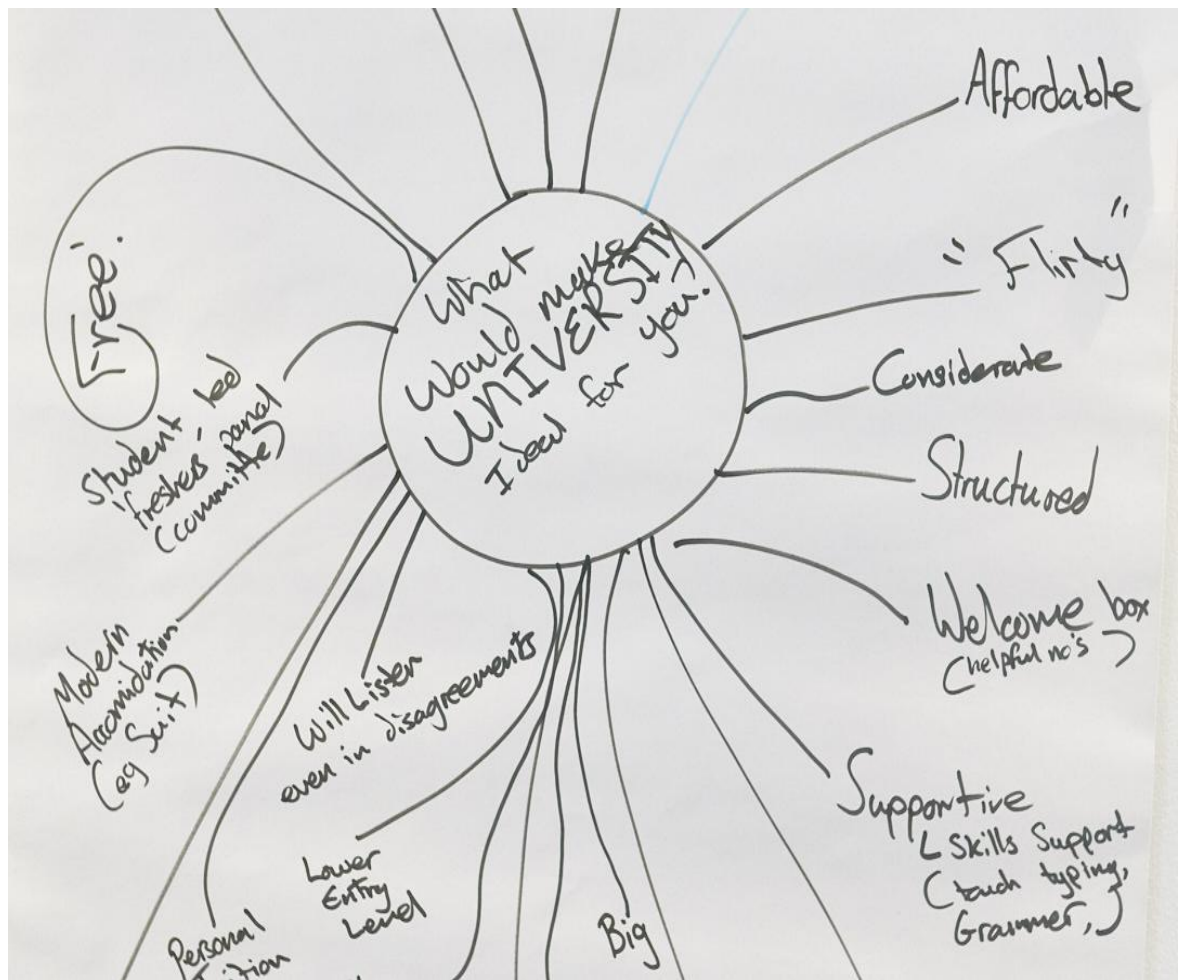 What
Would make
UNIVERSITY
Ideal for you?
Affordable
"Flirty"
Considerate
Structured
Welcome box
(helpful no's)
Supportive
L Skills Support
(touch typing,
Grammer,)
Big
Lower
Entry
Level
Will Listen
even in disagreements
Personal
Modern
Accomidation
(eg Suit)
Student led
'freshers' panal
(committe)
'Free'.